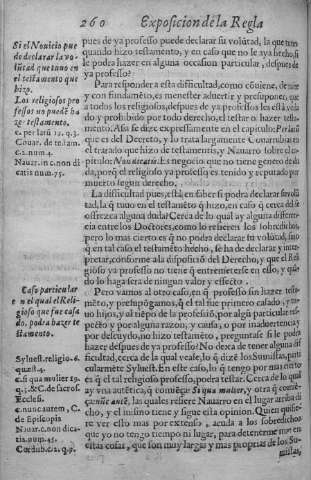 260 Exposicion de la Regla
Si el Nouicio pue
de declarar la vo-
lũtad que tuuo en
el testamento que
hizo.
Los religiosos pro
fessos no puedẽ ha
ze testamento.
c. per latũ 19. q. 3.
Couar. de testam.
c. 2. num. 4.
Nauar. in c. non di
catis num. 75.
Caso particular
e n el qual el Reli-
gioso que fue casa
do, podra hazer te
stamento.
Syluest. religio. 6.
quæst. 4.
c. si qua mulier 19.
q. 3. & C. de sacros.
Ecclesi.
c. nunc autem, C.
de Episcopis
Nauar. c. non dica-
tis. num. 45.
Cordub. q. 2. q. 9.
pues de ya professo puede declarar su volũtad, la que tuuo
quando hizo testamento, y en caso que no le aya hecho, si
le podra hazer en alguna occasion particular, despues de
ya professo?
Para responder a esta difficultad, como cõuiene, de rayz
y con fundamẽto, es menester aduertir y presuponer, que
a todos los religiosos, despues de ya professos les està veda
do y prohibido por todo derecho, el testar o hazer testa-
mento. Assi se dize expressamente en el capitulo: Per latũ
que es del Derecho, y lo trata largamente Couarrubias en
el tratado que hizo de testamentis, y Nauarro sobre el ca-
pitulo: Non dicatis. Es negocio que no tiene genero de du
da, porq̃ el religioso ya professo es tenido y reputado por
muerto segun derecho.
La difficultad pues, està en saber si podra declarar su volũ
tad, la q̃ tuuo en el testamẽto q̃ hizo, en caso q̃ cerca del se
offrezca alguna duda: Cerca de lo qual ay alguna differen-
cia entre los Doctores, como lo refieren los sobredichos,
pero lo mas cierto es q̃ no podra declarar su volũtad, sino
q̃ en tal caso el testamẽto hecho, se ha de declarar y inter-
pretar, conforme a la disposiciõ del Derecho, y que el Reli
gioso ya professo no tiene q̃ entremeterse en esso, y quã-
do lo haga sera de ningun valor y effecto.
Pero vamos al otro caso, en q̃ professo sin hazer testa-
mẽto, y presupõgamos, q̃ el tal fue primero casado, y tu-
uo hijos, y al tiẽpo de la professiõ, por algũ particular res-
pecto y por alguna razon, y causa, o por inaduertencia y
por descuydo, no hizo testamento, preguntase si le podra
hazer despues de ya professo? No dexa de tener alguna dif
ficultad, cerca de la qual veale, lo q̃ dizẽ los Sumistas, parti
cularmẽte Syluest. En este caso, lo q̃ tengo por mas cierto
es q̃ el tal religioso professo, podra testar. Cerca de lo qual
ay vna autẽtica, q̃ comiẽça: Si qua mulier, y otra q̃ comiẽ-
ça: nũc autẽ, las quales refiere Nauarro en el lugar arriba di
cho, y el mismo tiene y sigue esta opinion. Quien quisie-
re ver esto mas por extenso, acuda a los sobredichos
que yo no tengo tiempo ni lugar, para detenerme mas en
estas cosas, que son muy largas y mas proprias de los Su-
mistas,